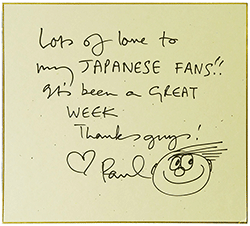 Lots of love to
my JAPANESE FANS!!
It's been a GREAT
WEEK
Thanks guys!
Paul